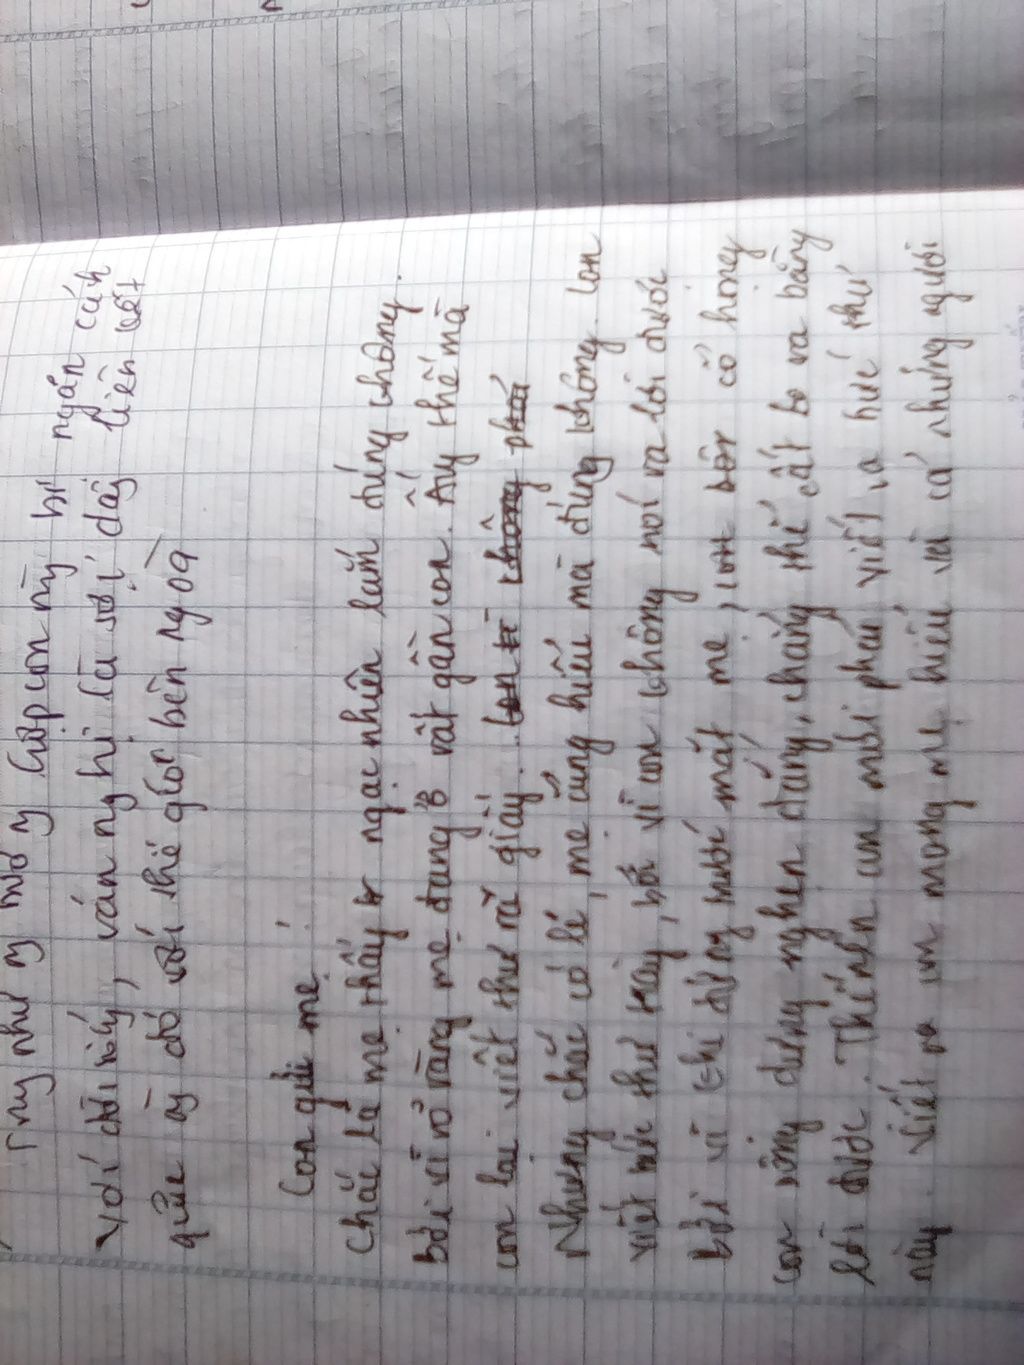 Truy như y như y hợp con mỹ bị ngăn cách
Với đời sống, vẫn nghị là sợi dây liên kết
giữa với thế giới bên ngoà
Con gửi mẹ!
Chắc là mẹ thấy ngạc nhiên lắm đúng không.
Bởi vì rõ ràng mẹ đang ở rất gần con. Ấy thế mà
con lại viết thư ra giấy.
Nhưng chắc có lẽ, mẹ cũng hiểu mà đúng không. Con
viết bức thư này, bởi vì con không nói ra lời được
Bởi vì khi đứng trước mắt mẹ, con cổ họng
con bỗng dưng nghẹn đắng, chẳng thể cất ra bằng
lời được. Thế nên con mới phải viết ra bức thư
này. Viết ra con mong mẹ hiểu vì có những người